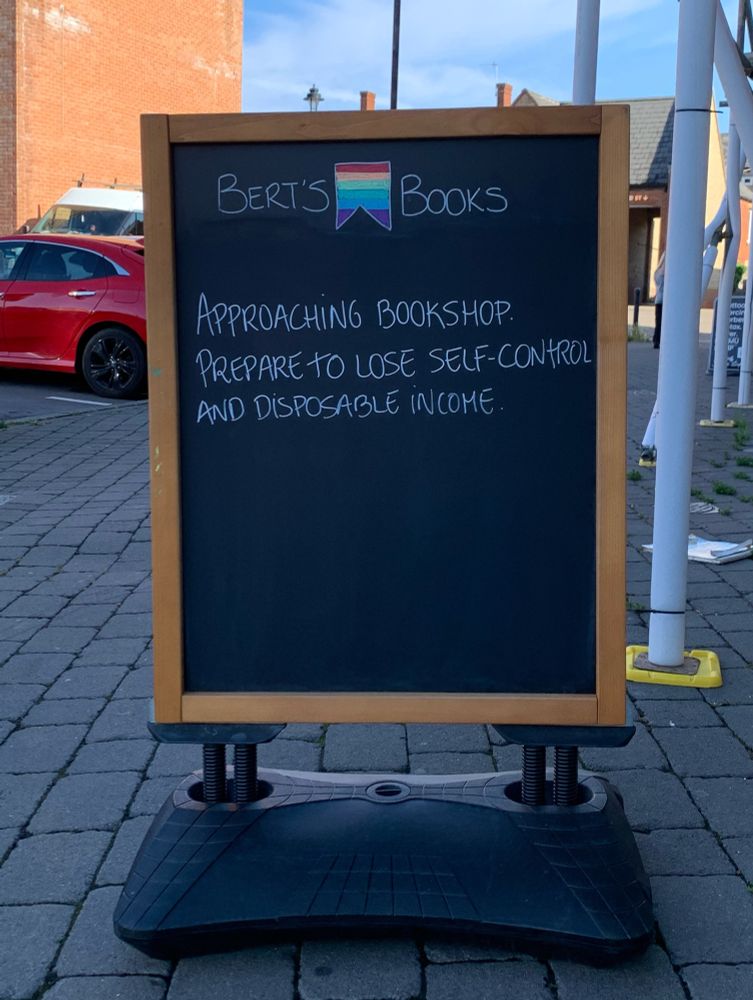 BERT'S BOOKS
APPROACHING BOOKSHOP.
PREPARE TO LOSE SELF-CONTROL
AND DISPOSABLE INCOME.